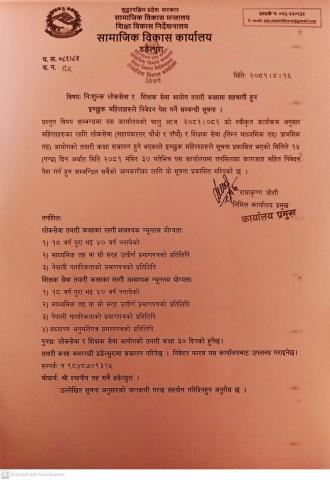 सुदूरपश्चिम प्रदेश सरकार
सामाजिक विकास मन्त्रालय
शिक्षा विकास निर्देशनालय
सामाजिक विकास कार्यालय
डडेल्धुरा
प. स. ०८१/८२
च. न.
मितिः २०८१।८।१६
विषयः निःशुल्क लोकसेवा र शिक्षक सेवा आयोग तयारी कक्षामा सहभागी हुन
इच्छुक महिलाहरुले निवेदन पेश गर्ने सम्बन्धी सूचना ।
प्रस्तुत विषय सम्बन्धमा यस कार्यालयको चालु आ.व. २०८१।०८२ को स्वीकृत कार्यक्रम अनुसार
महिलाहरुका लागि लोकसेवा (सहायकस्तर चौथो र पाँचौ) र शिक्षक सेवा (निम्न माध्यमिक तह/ प्राथमिक
तह) आयोगको तयारी कक्षा सञ्चालन हुने भएकाले इच्छुक महिलाहरुले सूचना प्रकाशित भएको मितिले १५
(पन्ध्र) दिन अर्थात मिति २०८१ मंसिर ३० गतेभित्र यस कार्यालयमा तपसिलका कागजात सहित निवेदन
पेश गर्न हुन सम्बन्धित सबैको जानकारीका लागि यो सूचना प्रकाशित गरिएको छ ।
राधाकृष्ण जोशी
निमित्त कार्यालय प्रमुख
कार्यालय प्रमुख
तपसिलः
लोकसेवा तयारी कक्षाका लागी आवश्यक न्यूनतम योग्यताः
१) १८ वर्ष पुरा भइ ४० वर्ष ननाघेको
२) माध्यमिक तह वा सो सरह उत्तीर्ण प्रमाणपत्रको प्रतिलिपि
३) नेपाली नागरिकताको प्रमाणपत्रको प्रतिलिपि
शिक्षक सेवा तयारी कक्षाका लागी आवश्यक न्यूनतम योग्यताः
१) १८ वर्ष पुरा भइ ४० वर्ष ननाघेको
२) माध्यमिक तह वा सो सरह उत्तीर्ण प्रमाणपत्रको प्रतिलिपि
३) नेपाली नागरिकताको प्रमाणपत्रको प्रतिलिपि
४) अध्यापन अनुमतिपत्र प्रमाणपत्रको प्रतिलिपि
पुनश्चः लोकसेवा र शिक्षक सेवा आयोगको तयारी कक्षा ३० दिनको हुनेछ।
तयारी कक्षा अमरगढी डडेल्धुरामा सञ्चालन गरिनेछ । निवेदन फारम यस कार्यालयबाट उपलब्ध गराइनेछ।
सम्पर्क न ९८४८७०१३९५
बोधार्थः श्री स्थानीय तह सबै डडेल्धुरा ।
उल्लेखित सूचना अनुसारको जानकारी गराइ सहयोग गरिदिनहुन अनुरोध छ ।
Scanned with CamScanner